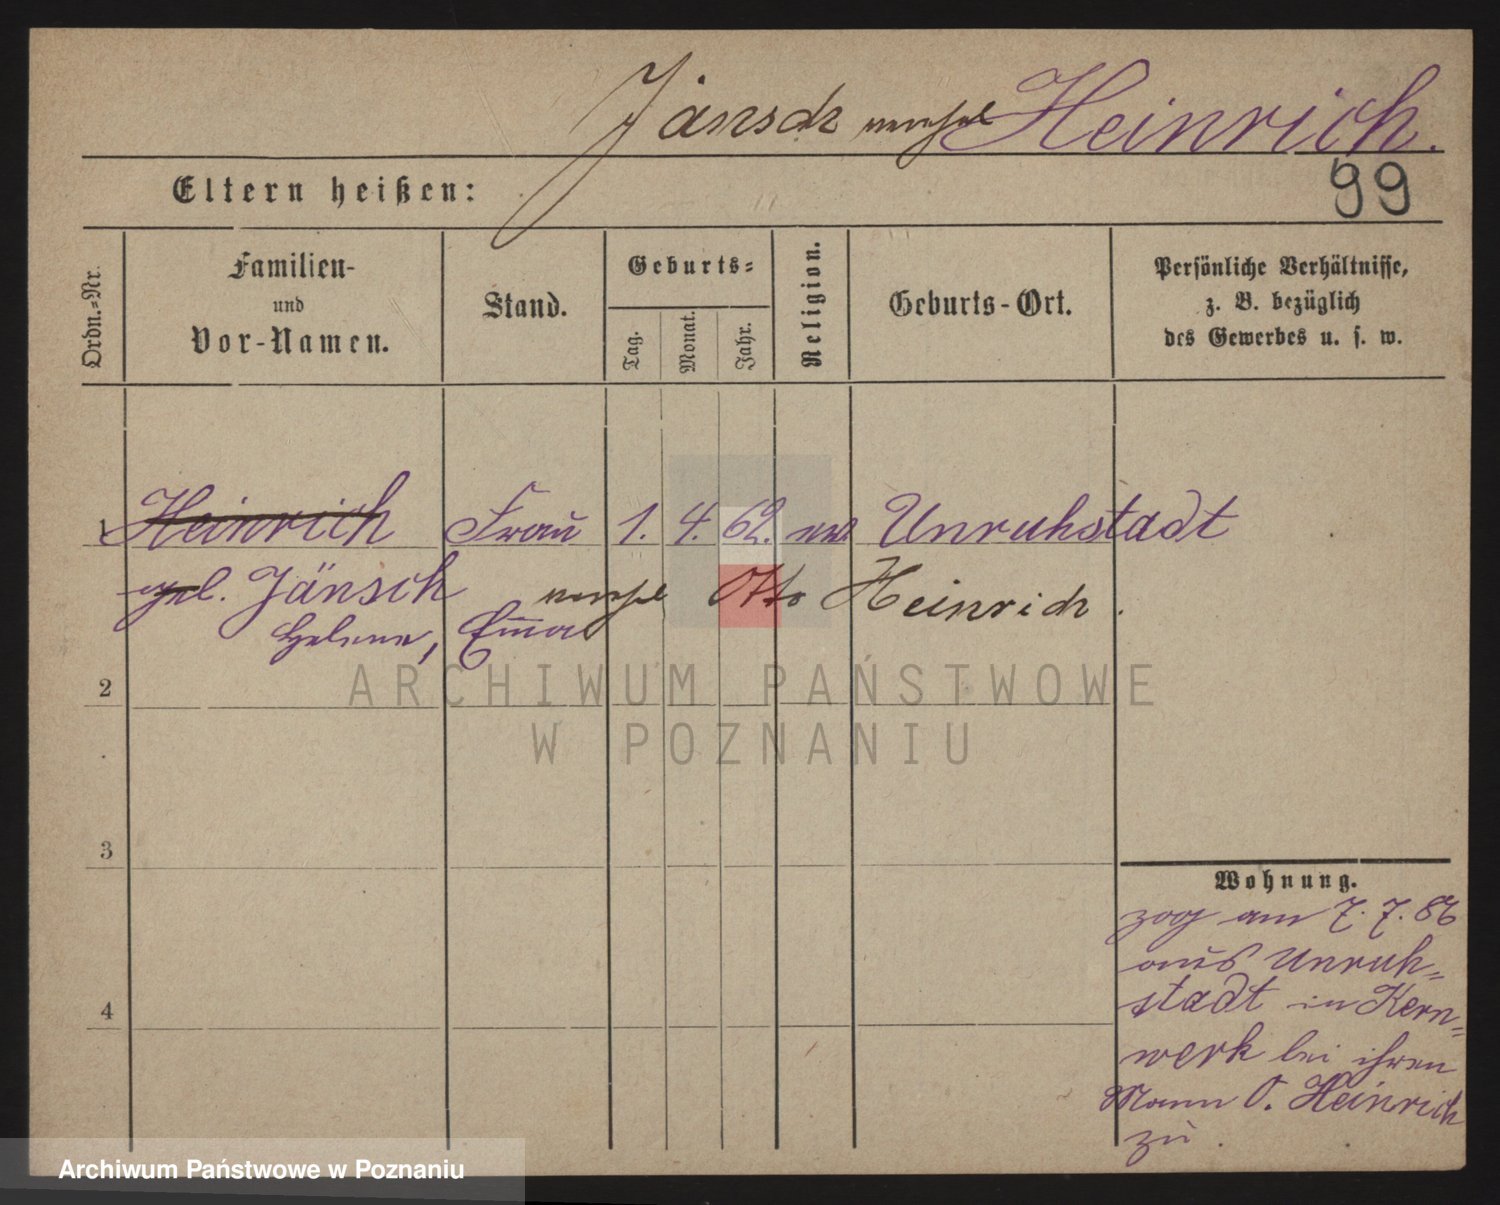 Jänsch verehel Heinrich.
Eltern heißen:
99
Ordn.-Nr.
Familien-
und
Vor-Namen.
Stand.
Geburts-
Tag.
Monat.
Jahr.
Religion.
Geburts-Ort.
Persönliche Verhältnisse,
z. B. bezüglich
des Gewerbes u. s. w.
1 Heinrich Frau 1. 4. 62. ev Unruhstadt
geb. Jänsch verehel Otto Heinrich.
Helene, Em̄a
2
3
4
Wohnung.
zog am 7. 7. 86
aus Unruh-
stadt in Kern-
werk bei ihren
Mann O. Heinrich
zu.
ARCHIWUM PAŃSTWOWE
W POZNANIU
Archiwum Państwowe w Poznaniu